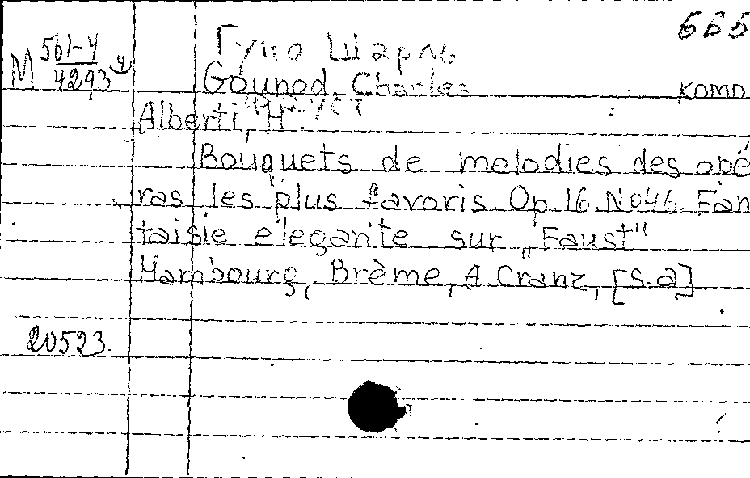 655
М 561-4
4293
Гуно Шарль
Gounod, Charles
комп
Alberti, H.
Bouquets de melodies des opé
ras les plus favoris Op.16 No46 Fan
taisie elegante sur „Faust"
Hambourg, Brème, A. Cranz, [s.a]
20523.